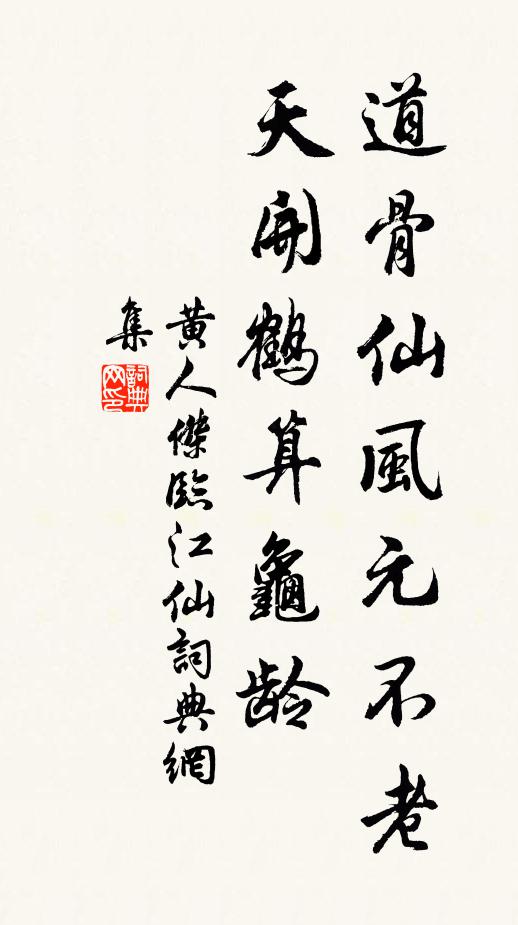 道骨仙風元不老
天開鶴算龜龄
黃人傑臨江仙詞典網
集
詞典
网印